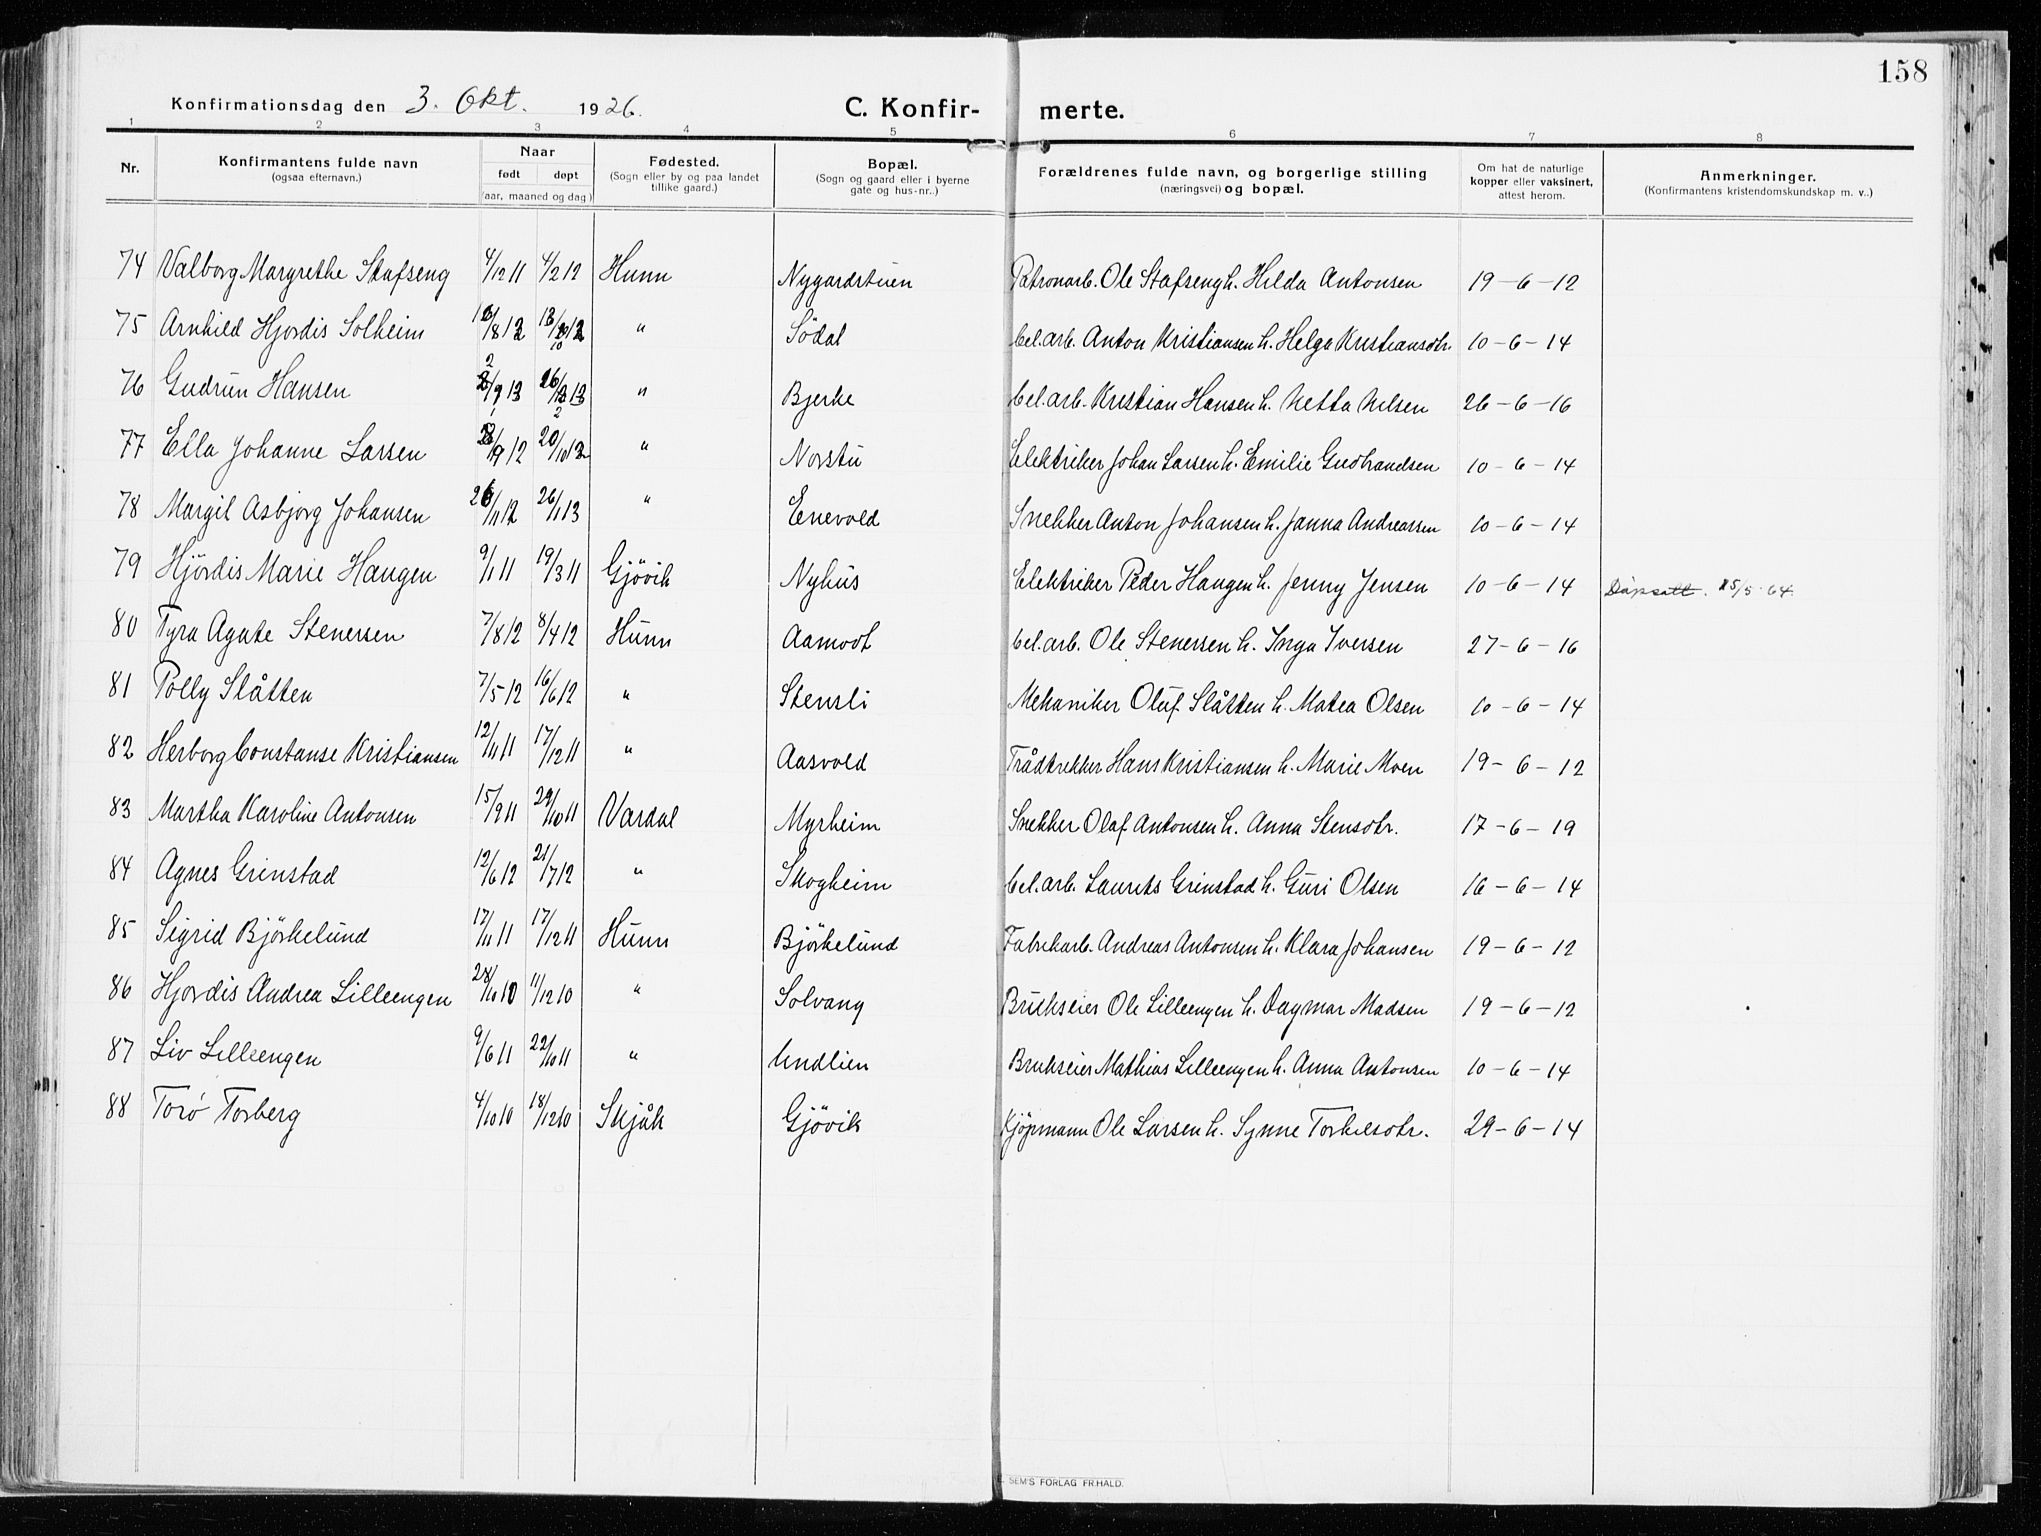 158
Konfirmationsdag den 3. Okt. 1926. C. Konfir- merte.
1 2 3 4 5 6 7 8
Nr. Konfirmantens fulde navn (ogsaa efternavn.) Naar født døpt (aar, maaned og dag) Fødested. (Sogn eller by og paa landet tillike gaard.) Bopæl. (Sogn og gaard eller i byerne gate og hus-nr..) Forældrenes fulde navn, og borgerlige stilling (næringsvei) og bopæl. Om hat de naturlige kopper eller vaksinert, attest herom. Anmerkninger. (Konfirmantens kristendomskundskap m. v..)
74 Valborg Margrethe Stafseng 4/12 11 4/2 12 Hunn Nygardstuen Patronarb. Ole Stafseng h. Hilda Antonsen 19-6-12
75 Arnhild Hjordis Solheim " Södal Cel.arb. Anton Kristiansen h. Helga Kristiansdtr. 10-6-14
76 Gudrun Hansen " Bjerke Cel.arb. Kristian Hansen h. Netta Nilsen 26-6-16
77 Ella Johanne Larsen 20/10 12 " Norstu Elektriker Johan Larsen h. Emilie Gudbrandsen 10-6-14
78 Margit Asbjorg Johansen 26/11 12 26/1 13 " Enevold Snekker Anton Johansen h. Janna Andreassen 10-6-14
79 Hjördis Marie Haugen 9/1 11 19/3 11 Gjövik Nyhus Elektriker Peder Haugen h. Jenny Jensen 10-6-14 Dåpsatt. 25/5-64
80 Tyra Agate Stenersen 7/8 12 8/4 12 Hunn Aamodt Cel.arb. Ole Stenersen h. Inga Iversen 27-6-16
81 Polly Slåtten 7/5 12 16/6 12 " Stensli Mekaniker Oluf Slåtten h. Matea Olsen 10-6-14
82 Herborg Constanse Kristiansen 12/11 11 17/12 11 " Aasvold Trådtrekker Hans Kristiansen h. Marie Moen 19-6-12
83 Martha Karoline Antonsen 15/9 11 29/10 11 Vardal Myrheim Snekker Olaf Antonsen h. Anna Stensdtr. 17-6-19
84 Agnes Grinstad 12/6 12 21/7 12 " Skogheim Cel.arb. Laurits Grinstad h. Guri Olsen 16-6-14
85 Sigrid Björkelund 17/11 11 17/12 11 Hunn Björkelund Fabrikarb. Andreas Antonsen h. Klara Johansen 19-6-12
86 Hjordis Andrea Lilleengen 28/10 10 11/12 10 " Solvang Brukseier Ole Lilleengen h. Dagmar Madsen 19-6-12
87 Liv Lilleengen 9/6 11 22/10 11 " Undlien Brukseier Mathias Lilleengen h. Anna Antonsen 10-6-14
88 Torö Torberg 4/10 10 18/12 10 Skjåk Gjövik Kjöpmann Ole Larsen h. Synne Torkelsdtr. 29-6-14
SEM'S FORLAG FR.HALD.